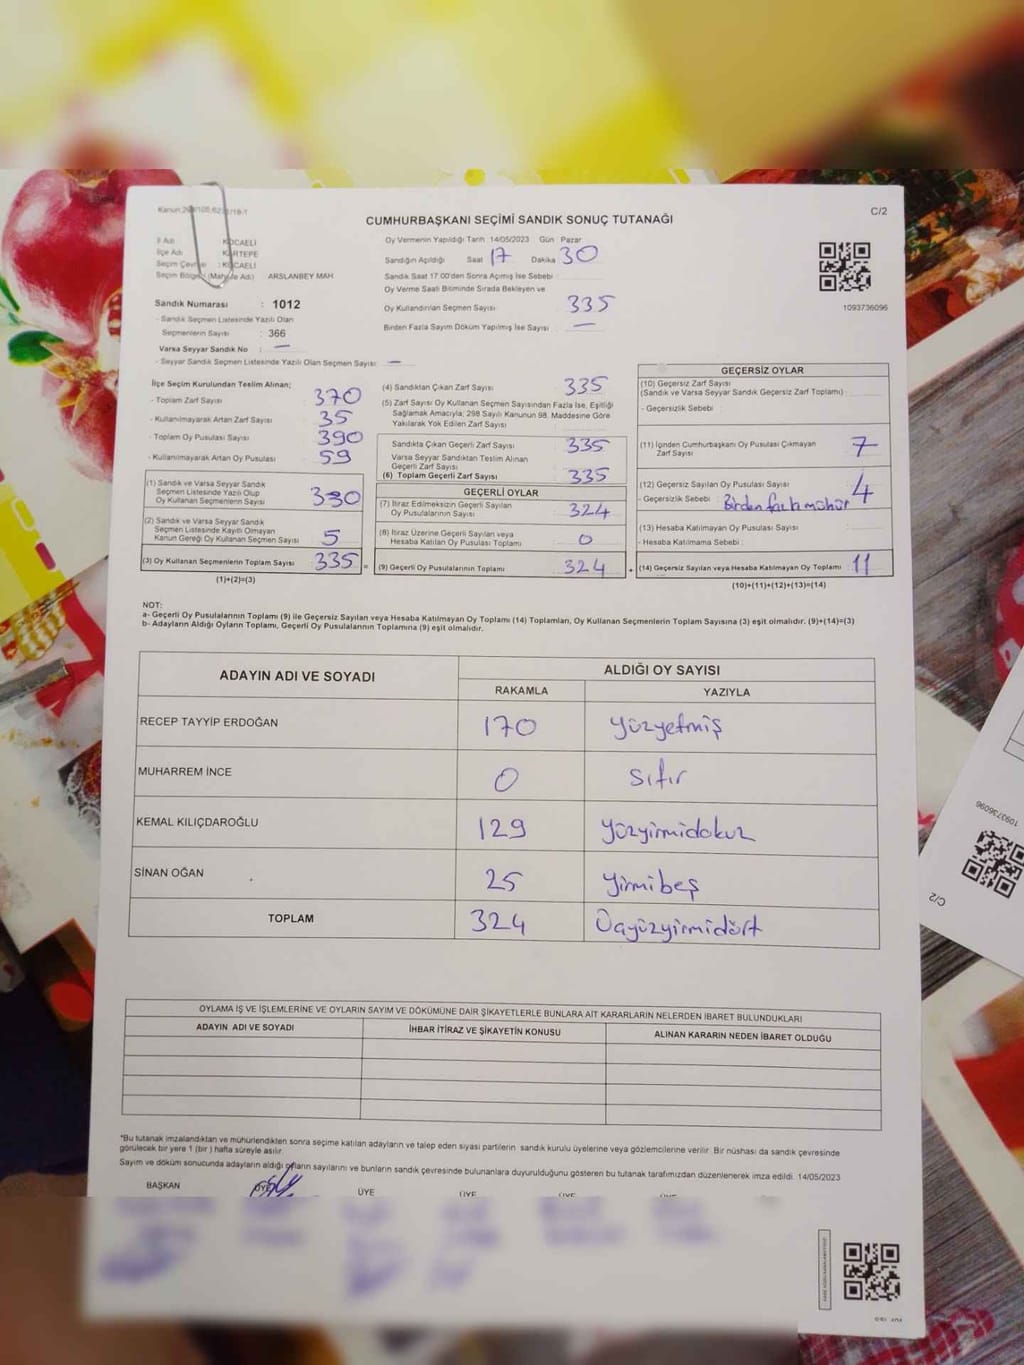 CUMHURBAŞKANI SEÇİMİ SANDIK SONUÇ TUTANAĞI
C/2
İl Adı KOCAELİ
İlçe Adı KARTEPE
Seçim Çevresi : KOCAELİ
Seçim Bölgesi (Mahalle Adı) ARSLANBEY MAH
Sandık Numarası : 1012
- Sandık Seçmen Listesinde Yazılı Olan
Seçmenlerin Sayısı : 366
Varsa Seyyar Sandık No : —
- Seyyar Sandık Seçmen Listesinde Yazılı Olan Seçmen Sayısı: —
Oy Vermenin Yapıldığı Tarih 14/05/2023 Gün Pazar
Sandığın Açıldığı Saat 17 Dakika 30
Sandık Saat 17.00'den Sonra Açılmış İse Sebebi
Oy Verme Saati Bitiminde Sırada Bekleyen ve
Oy Kullandırılan Seçmen Sayısı 335
Birden Fazla Sayım Döküm Yapılmış İse Sayısı —
1093736096
İlçe Seçim Kurulundan Teslim Alınan;
- Toplam Zarf Sayısı 370
- Kullanılmayarak Artan Zarf Sayısı 35
- Toplam Oy Pusulası Sayısı 390
- Kullanılmayarak Artan Oy Pusulası 59
(1) Sandık ve Varsa Seyyar Sandık
Seçmen Listesinde Yazılı Olup
Oy Kullanan Seçmenlerin Sayısı 330
(2) Sandık ve Varsa Seyyar Sandık
Seçmen Listesinde Kayıtlı Olmayan
Kanun Gereği Oy Kullanan Seçmen Sayısı 5
(3) Oy Kullanan Seçmenlerin Toplam Sayısı 335 =
(1)+(2)=(3)
(4) Sandıktan Çıkan Zarf Sayısı 335
(5) Zarf Sayısı Oy Kullanan Seçmen Sayısından Fazla İse, Eşitliği
Sağlamak Amacıyla; 298 Sayılı Kanunun 98. Maddesine Göre
Yakılarak Yok Edilen Zarf Sayısı
Sandıkta Çıkan Geçerli Zarf Sayısı 335
Varsa Seyyar Sandıktan Teslim Alınan
Geçerli Zarf Sayısı
(6) Toplam Geçerli Zarf Sayısı 335
GEÇERLİ OYLAR
(7) İtiraz Edilmeksizin Geçerli Sayılan
Oy Pusulalarının Sayısı 324
(8) İtiraz Üzerine Geçerli Sayılan veya
Hesaba Katılan Oy Pusulası Toplamı 0
(9) Geçerli Oy Pusulalarının Toplamı 324 +
GEÇERSİZ OYLAR
(10) Geçersiz Zarf Sayısı
(Sandık ve Varsa Seyyar Sandık Geçersiz Zarf Toplamı)
- Geçersizlik Sebebi
(11) İçinden Cumhurbaşkanı Oy Pusulası Çıkmayan
Zarf Sayısı 7
(12) Geçersiz Sayılan Oy Pusulası Sayısı 4
- Geçersizlik Sebebi : Birden fazla mühür
(13) Hesaba Katılmayan Oy Pusulası Sayısı
- Hesaba Katılmama Sebebi :
(14) Geçersiz Sayılan veya Hesaba Katılmayan Oy Toplamı 11
(10)+(11)+(12)+(13)=(14)
NOT:
a- Geçerli Oy Pusulalarının Toplamı (9) ile Geçersiz Sayılan veya Hesaba Katılmayan Oy Toplamı (14) Toplamları, Oy Kullanan Seçmenlerin Toplam Sayısına (3) eşit olmalıdır. (9)+(14)=(3)
b- Adayların Aldığı Oyların Toplamı, Geçerli Oy Pusulalarının Toplamına (9) eşit olmalıdır.
ADAYIN ADI VE SOYADI ALDIĞI OY SAYISI
RAKAMLA YAZIYLA
RECEP TAYYİP ERDOĞAN 170 Yüzyetmiş
MUHARREM İNCE 0 sıfır
KEMAL KILIÇDAROĞLU 129 Yüzyirmidokuz
SİNAN OĞAN 25 Yirmibeş
TOPLAM 324 Üçyüzyirmidört
OYLAMA İŞ VE İŞLEMLERİNE VE OYLARIN SAYIM VE DÖKÜMÜNE DAİR ŞİKAYETLERLE BUNLARA AİT KARARLARIN NELERDEN İBARET BULUNDUKLARI
ADAYIN ADI VE SOYADI İHBAR İTİRAZ VE ŞİKAYETİN KONUSU ALINAN KARARIN NEDEN İBARET OLDUĞU
*Bu tutanak imzalandıktan ve mühürlendikten sonra seçime katılan adayların ve talep eden siyasi partilerin sandık kurulu üyelerine veya gözlemcilerine verilir. Bir nüshası da sandık çevresinde
görülecek bir yere 1 (bir) hafta süreyle asılır.
Sayım ve döküm sonucunda adayların aldığı oyların sayılarını ve bunların sandık çevresinde bulunanlara duyurulduğunu gösteren bu tutanak tarafımızdan düzenlenerek imza edildi. 14/05/2023
BAŞKAN ÜYE ÜYE ÜYE ÜYE
1093736096
C/2